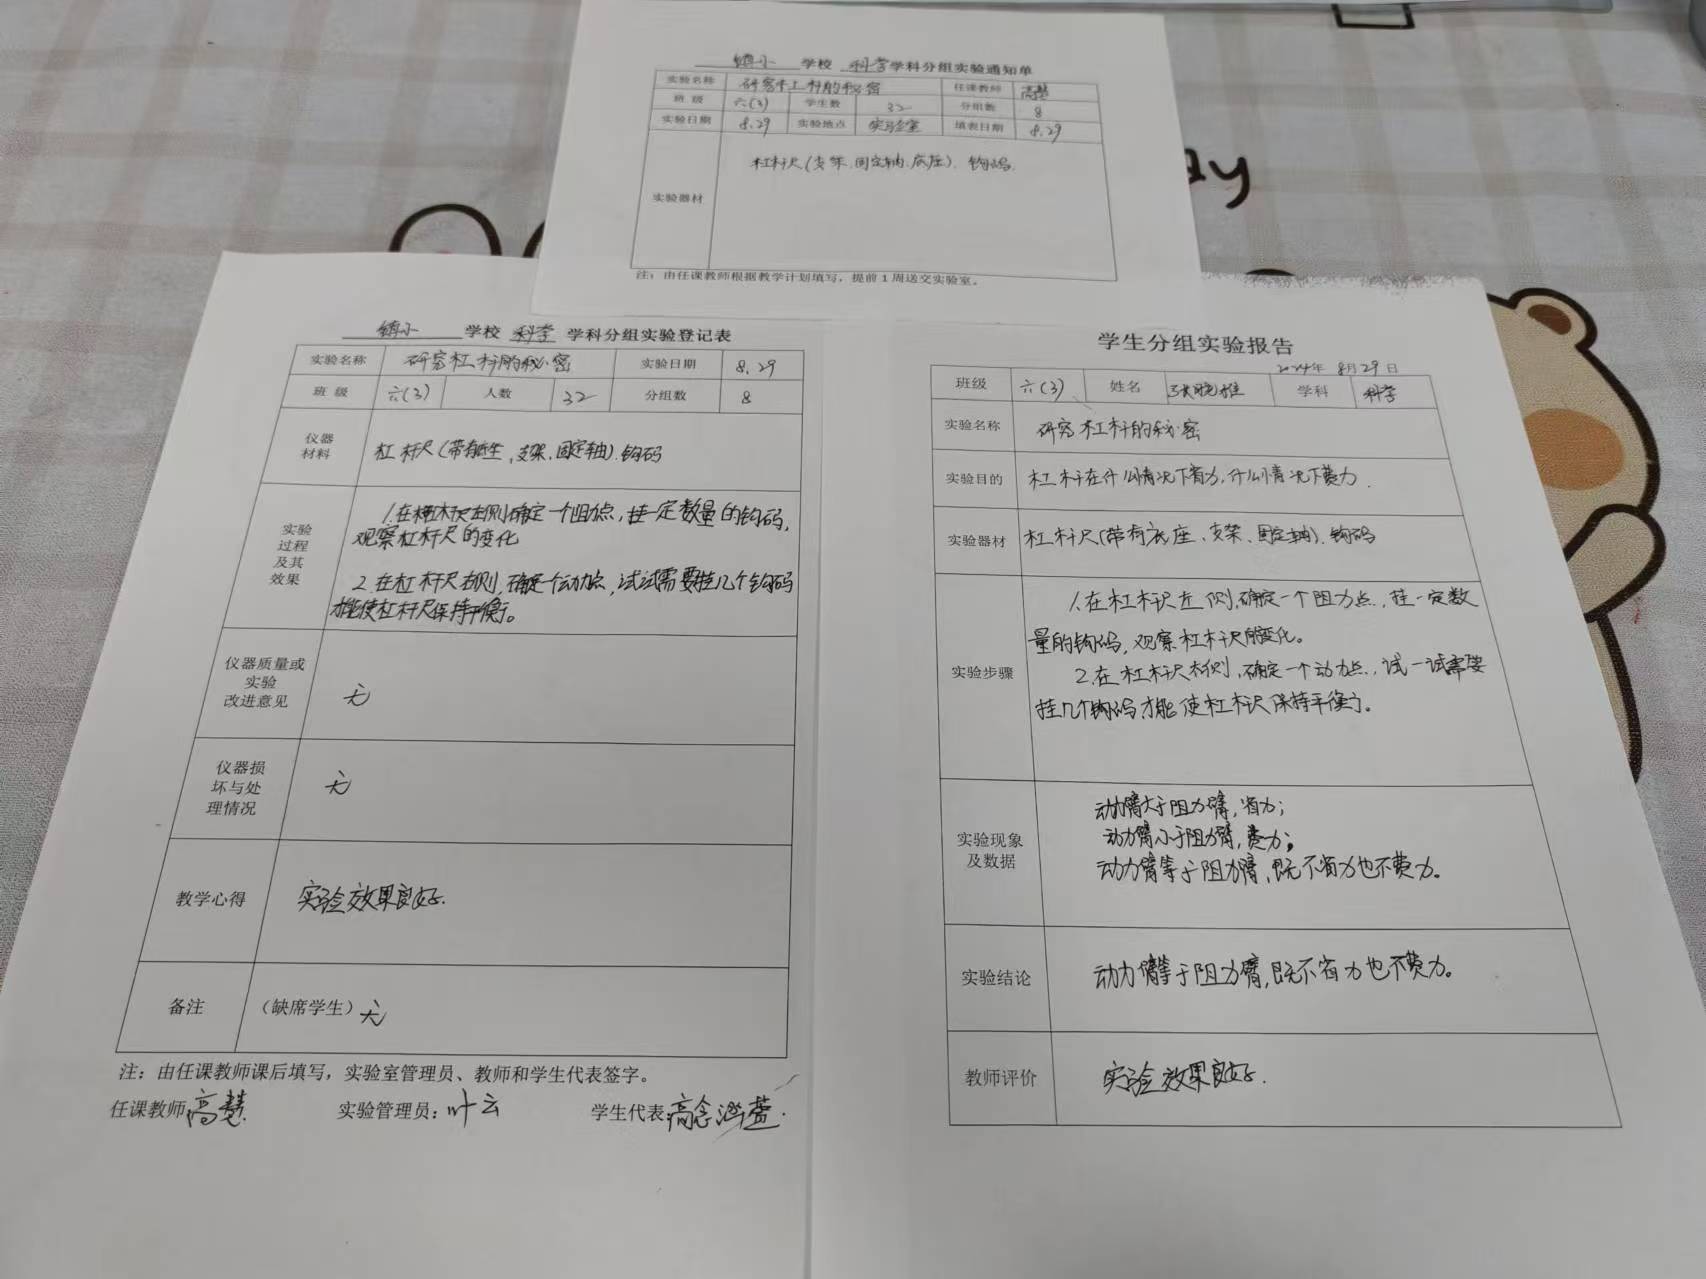 镇小 学校 科学 学科分组实验通知单
实验名称 研究杠杆的秘密 任课教师 高慧
班 级 六(3) 学生数 32 分组数 8
实验日期 8.29 实验地点 实验室 填表日期 8.29
实验器材 杠杆尺(支架、固定轴、底座)、钩码.
注：由任课教师根据教学计划填写，提前1周送交实验室。
镇小 学校 科学 学科分组实验登记表
实验名称 研究杠杆的秘密 实验日期 8.29
班 级 六(3) 人数 32 分组数 8
仪器
材料
杠杆尺(带有底座、支架、固定轴).钩码
实验
过程
及其
效果
1.在杠杆尺左侧确定一个阻力点,挂一定数量的钩码,
观察杠杆尺的变化
2.在杠杆尺右侧,确定一个动力点,试试需要挂几个钩码
才能使杠杆尺保持平衡。
仪器质量或
实验
改进意见
无
仪器损
坏与处
理情况
无
教学心得 实验效果良好.
备注 （缺席学生）无
注：由任课教师课后填写，实验室管理员、教师和学生代表签字。
任课教师:高慧 实验管理员：叶云 学生代表:高念涵萱
ay
学生分组实验报告
2024年 8月29日
班级 六(3) 姓名 张晓雅 学科 科学
实验名称 研究杠杆的秘密
实验目的 杠杆在什么情况下省力,什么情况下费力.
实验器材 杠杆尺(带有底座、支架、固定轴).钩码
实验步骤
1.在杠杆尺左侧,确定一个阻力点,挂一定数
量的钩码,观察杠杆尺的变化。
2.在杠杆尺右侧,确定一个动力点,试一试需要
挂几个钩码才能使杠杆尺保持平衡。
实验现象
及数据
动力臂大于阻力臂,省力;
动力臂小于阻力臂,费力;
动力臂等于阻力臂,既不省力也不费力。
实验结论 动力臂等于阻力臂,既不省力也不费力。
教师评价 实验效果良好.